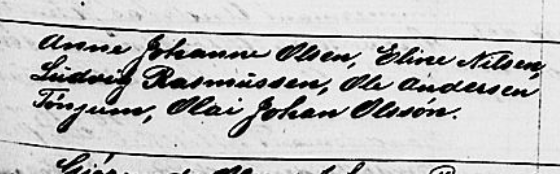 Anne Johanne Olsen, Eline Nilsen,
Ludvig Rasmussen, Ole Andersen
Tongum, Olai Johan Olssón.